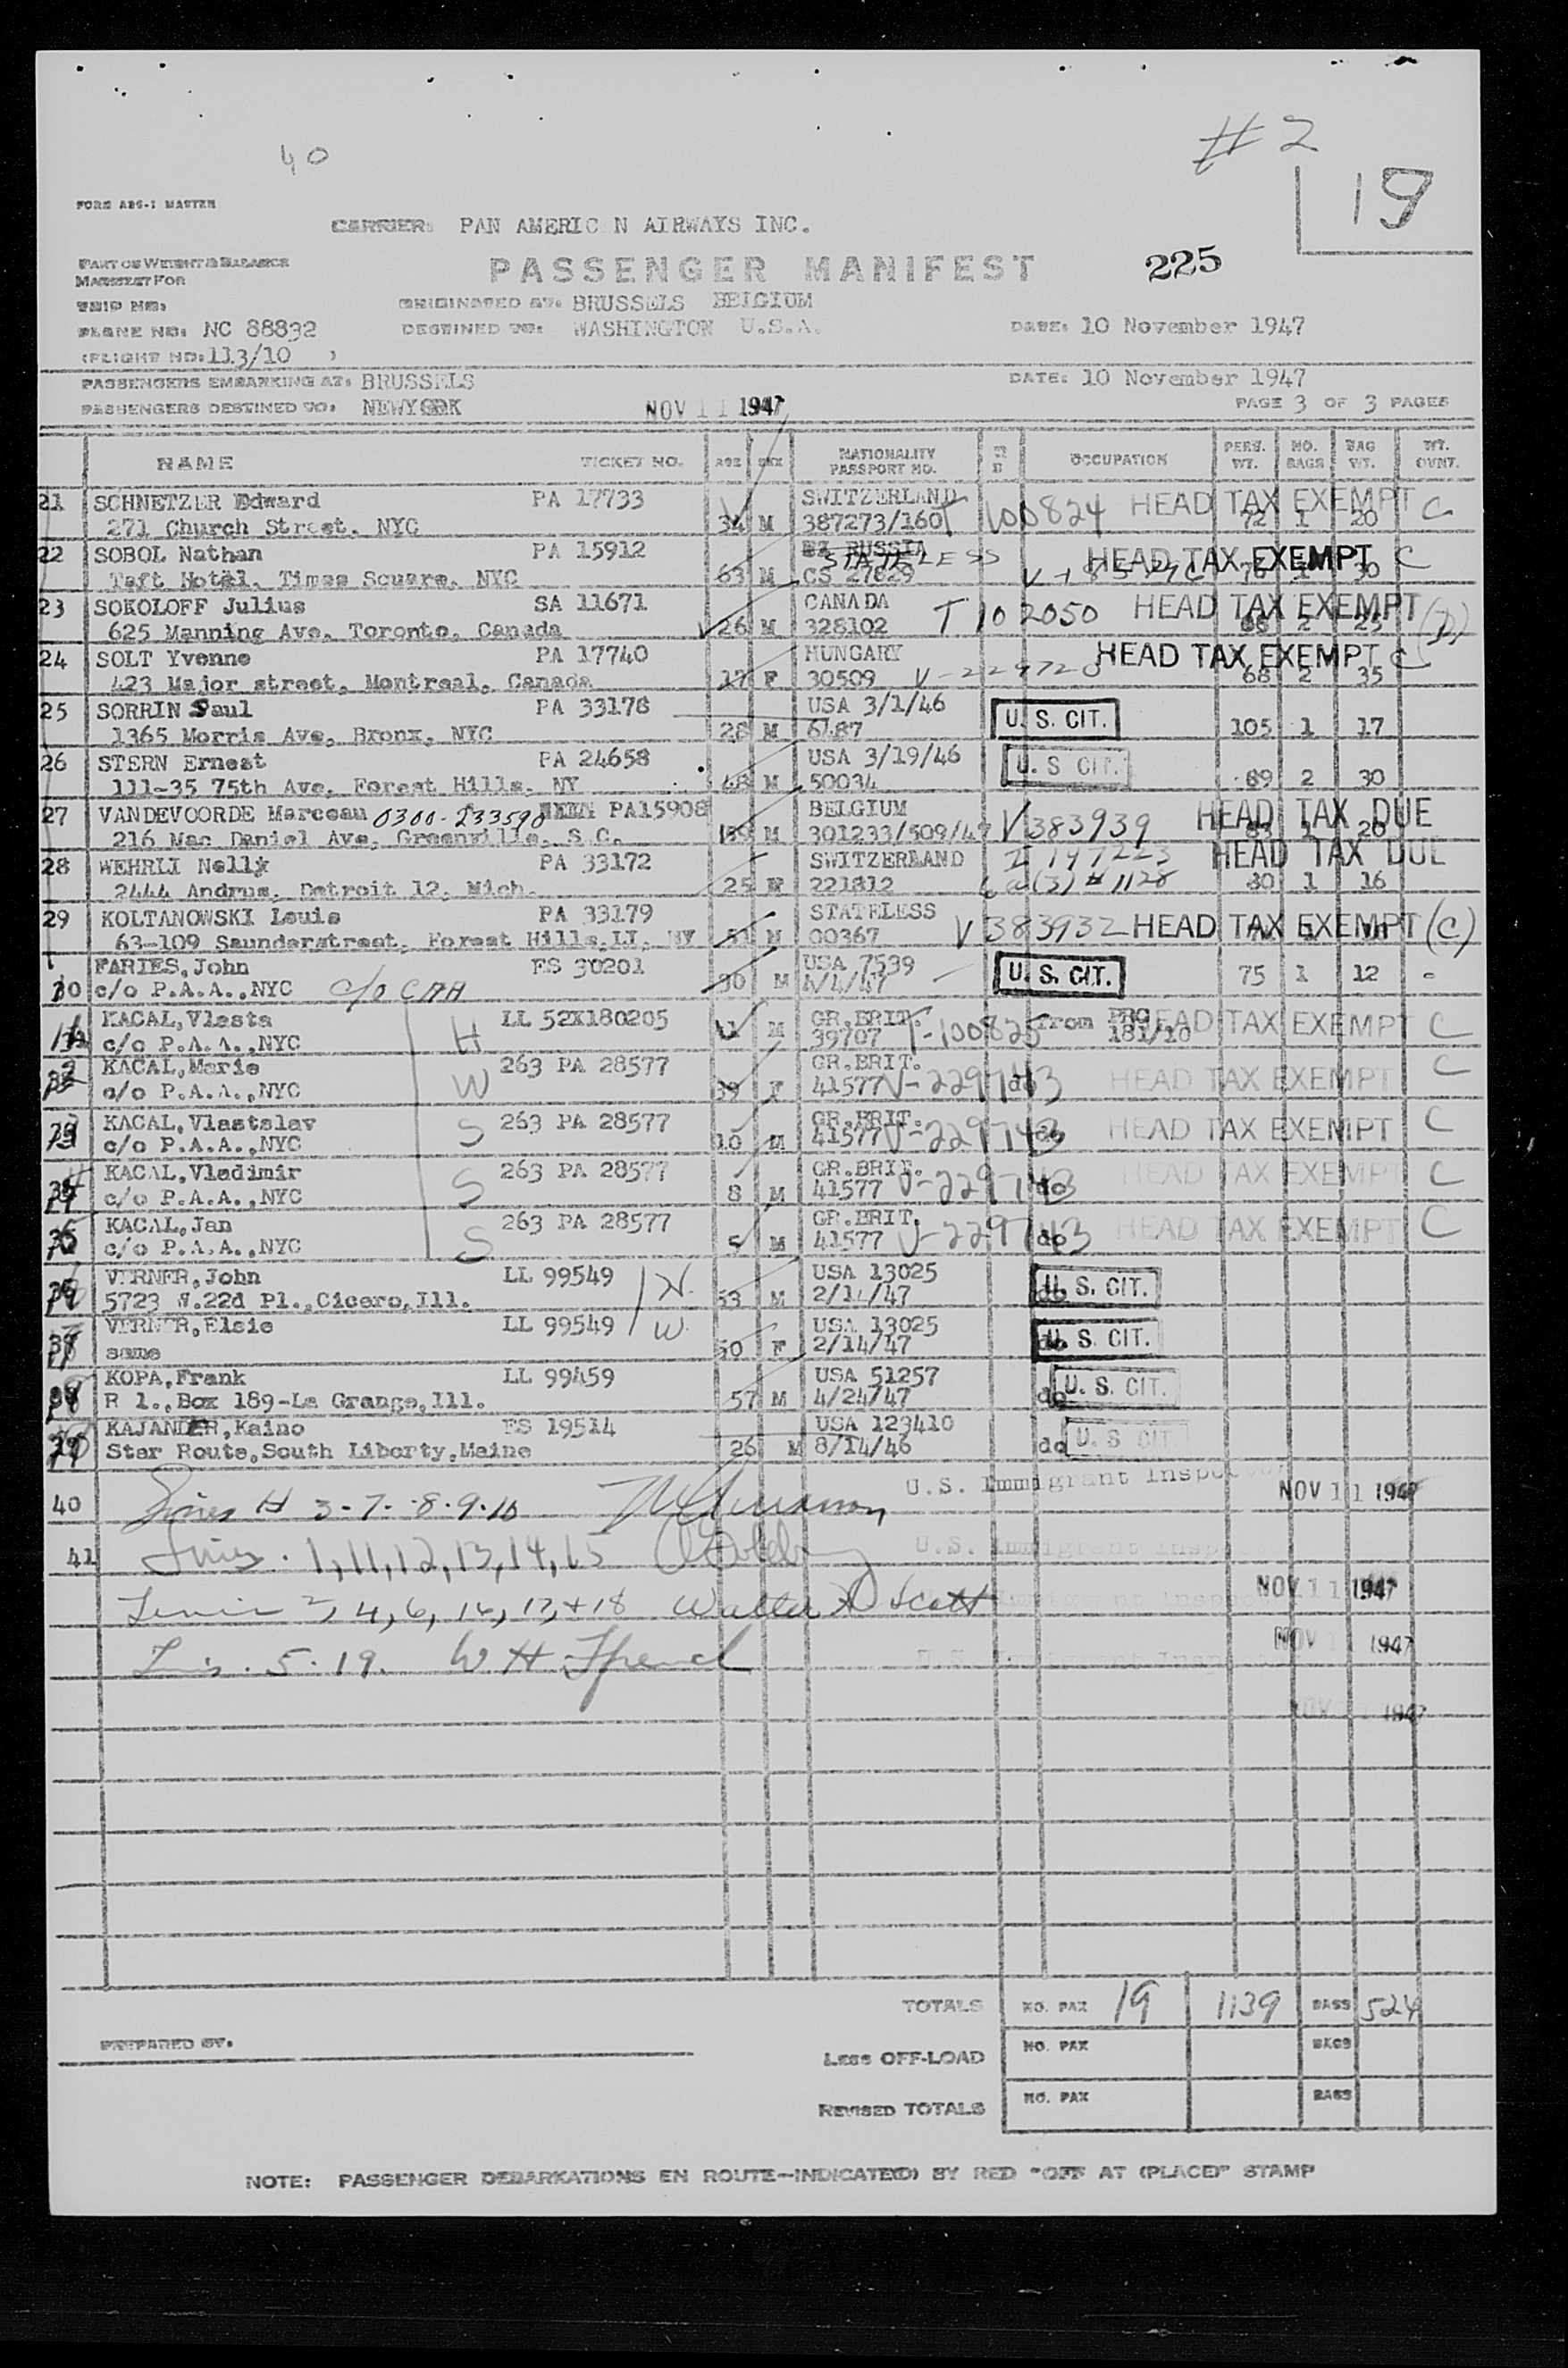 # 2
40
19
FORM A26-1 MASTER
CARRIER: PAN AMERIC N AIRWAYS INC.
PART OF WEIGHT & BALANCE
MANIFEST FOR
PASSENGER MANIFEST
225
TRIP NO:
ORIGINATED AT: BRUSSELS BELGIUM
PLANE NO: NC 88892
DESTINED TO: WASHINGTON U.S.A.
DATE: 10 November 1947
(FLIGHT NO: 113/10 )
PASSENGERS EMBARKING AT: BRUSSELS
DATE: 10 November 1947
PASSENGERS DESTINED TO: NEWYORK
NOV 11 1947
PAGE 3 OF 3 PAGES
NAME TICKET NO. AGE SEX NATIONALITY PASSPORT NO. OCCUPATION PERS. WT. NO. BAGS BAG WT. WT. OVNT.
21 SCHNETZER Edward PA 17733 SWITZERLAND HEAD TAX EXEMPT C
271 Church Street, NYC 34 M 387273/160 T 100824 72 1 20
22 SOBOL Nathan PA 15912 STATELESS HEAD TAX EXEMPT C
Taft Hotel, Times Square, NYC 63 M CS 27829 30
23 SOKOLOFF Julius SA 11671 CANADA T 102050 HEAD TAX EXEMPT
625 Manning Ave, Toronto, Canada 26 M 328102 2 25
24 SOLT Yvonne PA 17740 HUNGARY HEAD TAX EXEMPT C
423 Major street, Montreal, Canada 17 F 30509 V-229720 68 2 35
25 SORRIN Saul PA 33178 USA 3/1/46 U. S. CIT.
1365 Morris Ave, Bronx, NYC 28 M 6487 105 1 17
26 STERN Ernest PA 24658 USA 3/19/46 U. S CIT.
111-35 75th Ave, Forest Hills, NY 48 M 50034 89 2 30
27 VANDEVOORDE Marceau 0300-233598 PA15908 BELGIUM HEAD TAX DUE
216 Mac Daniel Ave, Greenville, S.C. M 301233/509/47 V383939 83 1 20
28 WEHRLI Nelly PA 33172 SWITZERLAND HEAD TAX DUE
2444 Andrus, Detroit 12, Mich. 25 221812 (3) # 1128 80 1 16
29 KOLTANOWSKI Louis PA 33179 STATELESS V 383932 HEAD TAX EXEMPT (C)
63-109 Saunderstreet, Forest Hills, LI, NY M 00367
FARIES, John FS 30201 USA 7539 U. S. CIT.
c/o P.A.A.,NYC c/o CAA 30 M 4/4/47 75 1 12
KACAL, Vlasta LL 52X180205 GR.BRIT. from PRG HEAD TAX EXEMPT C
c/o P.A.A.,NYC H M 39707 T-100825 181/10
KACAL, Marie 263 PA 28577 GR.BRIT. C
c/o P.A.A.,NYC W 39 F 41577 V-229743 do HEAD TAX EXEMPT
KACAL, Vlastslav 263 PA 28577 GR.BRIT. C
c/o P.A.A.,NYC S 10 M 41577 V-229743 do HEAD TAX EXEMPT
KACAL, Vladimir 263 PA 28577 GR.BRIT. HEAD TAX EXEMPT C
c/o P.A.A.,NYC S 8 M 41577 V-229743 do
KACAL, Jan 263 PA 28577 GR.BRIT. HEAD TAX EXEMPT C
c/o P.A.A.,NYC S 5 M 41577 V-229743 do
VERNER, John LL 99549 H. USA 13025 U. S. CIT.
5723 W.22d Pl.,Cicero,Ill. 53 M 2/14/47 do
VERNER, Elsie LL 99549 W. USA 13025 U. S. CIT.
same 50 F 2/14/47 do
KOPA, Frank LL 99459 USA 51257 U. S. CIT.
R 1.,Box 189-La Grange,Ill. 57 M 4/24/47 do
KAJANDER, Kaino FS 19514 USA 123410 U. S CIT
Star Route,South Liberty,Maine 26 M 8/14/46 do
40 Lines # 3-7-8-9-10 U.S. Immigrant Inspector NOV 11 1947
41 Lines. 1,11,12,13,14,15 U.S. Immigrant Inspector
Lines 2, 4, 6, 16, 17, + 18 Walter A Scott Immigrant Inspector NOV 11 1947
Lins. 5. 19. W H U.S. Immigrant Inspector NOV 1947
NOV 1947
TOTALS NO. PAX 19 1139 BAGS 524
PREPARED BY:
Less OFF-LOAD NO. PAX BAGS
REVISED TOTALS NO. PAX BAGS
NOTE: PASSENGER DEBARKATIONS EN ROUTE—INDICATE(D) BY RED "OFF AT (PLACE)" STAMP